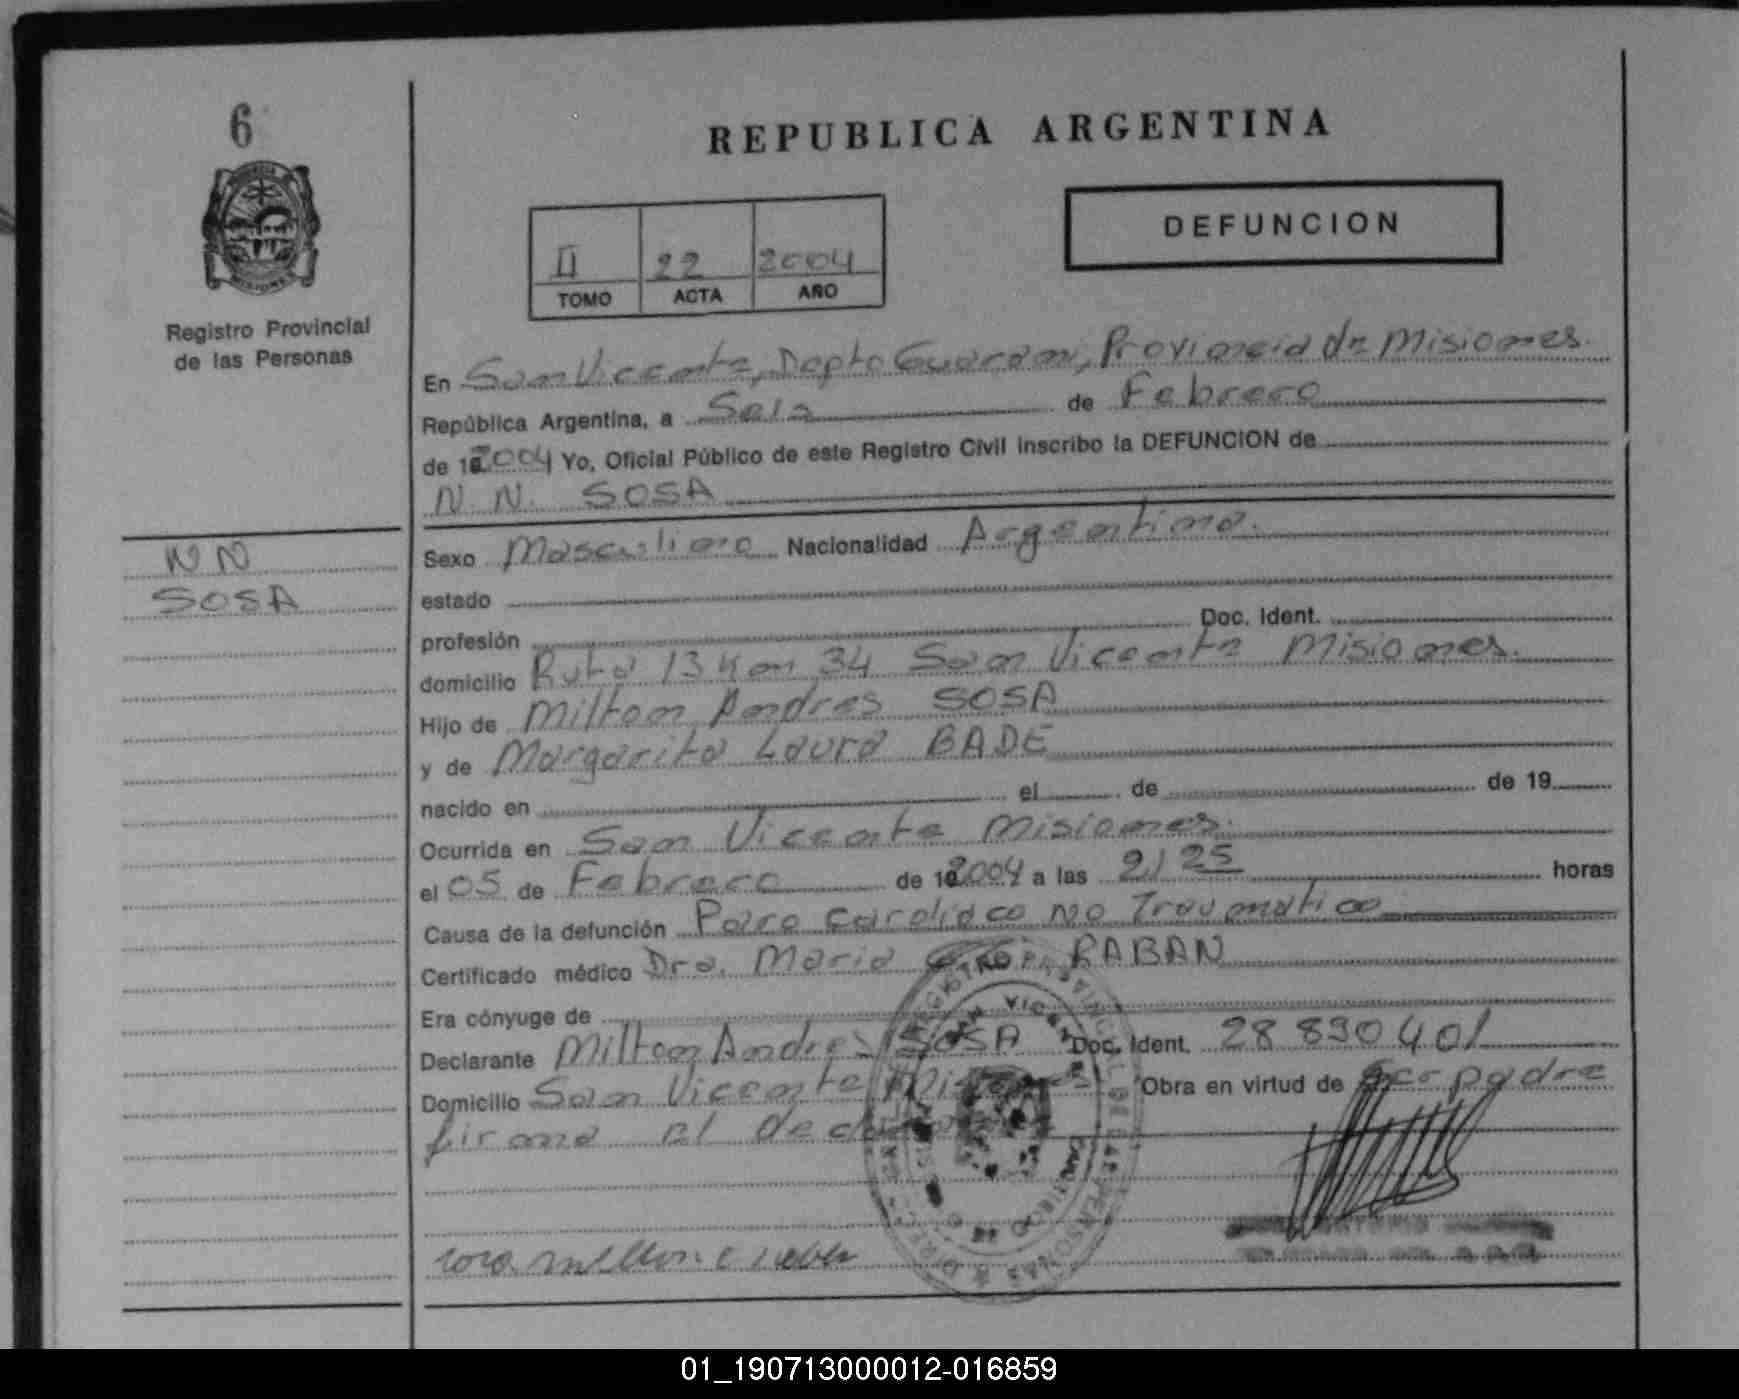 6
REPUBLICA ARGENTINA
DEFUNCION
II 22 2004
TOMO ACTA AÑO
Registro Provincial
de las Personas
En San Vicente, Depto Guarani, Provincia de Misiones.
República Argentina, a Seis de Febrero
de 2004 Yo, Oficial Público de este Registro Civil inscribo la DEFUNCION de
N. N. SOSA
N N
SOSA
Sexo Masculino Nacionalidad Argentina.
estado
profesión Doc. Ident.
domicilio Ruta 13 Km 34 San Vicente Misiones.
Hijo de Milton Andres SOSA
y de Margarita Laura BADE
nacido en el de de 19
Ocurrida en San Vicente Misiones.
el 05 de Febrero de 2004 a las 21 25 horas
Causa de la defunción Paro cardiaco no Traumatico
Certificado médico Dra. Maria RABAN
Era cónyuge de
Declarante Milton Andres SOSA Doc. Ident. 28 890 401
Domicilio San Vicente Misiones Obra en virtud de Ser padre
firma el declarante
01_190713000012-016859